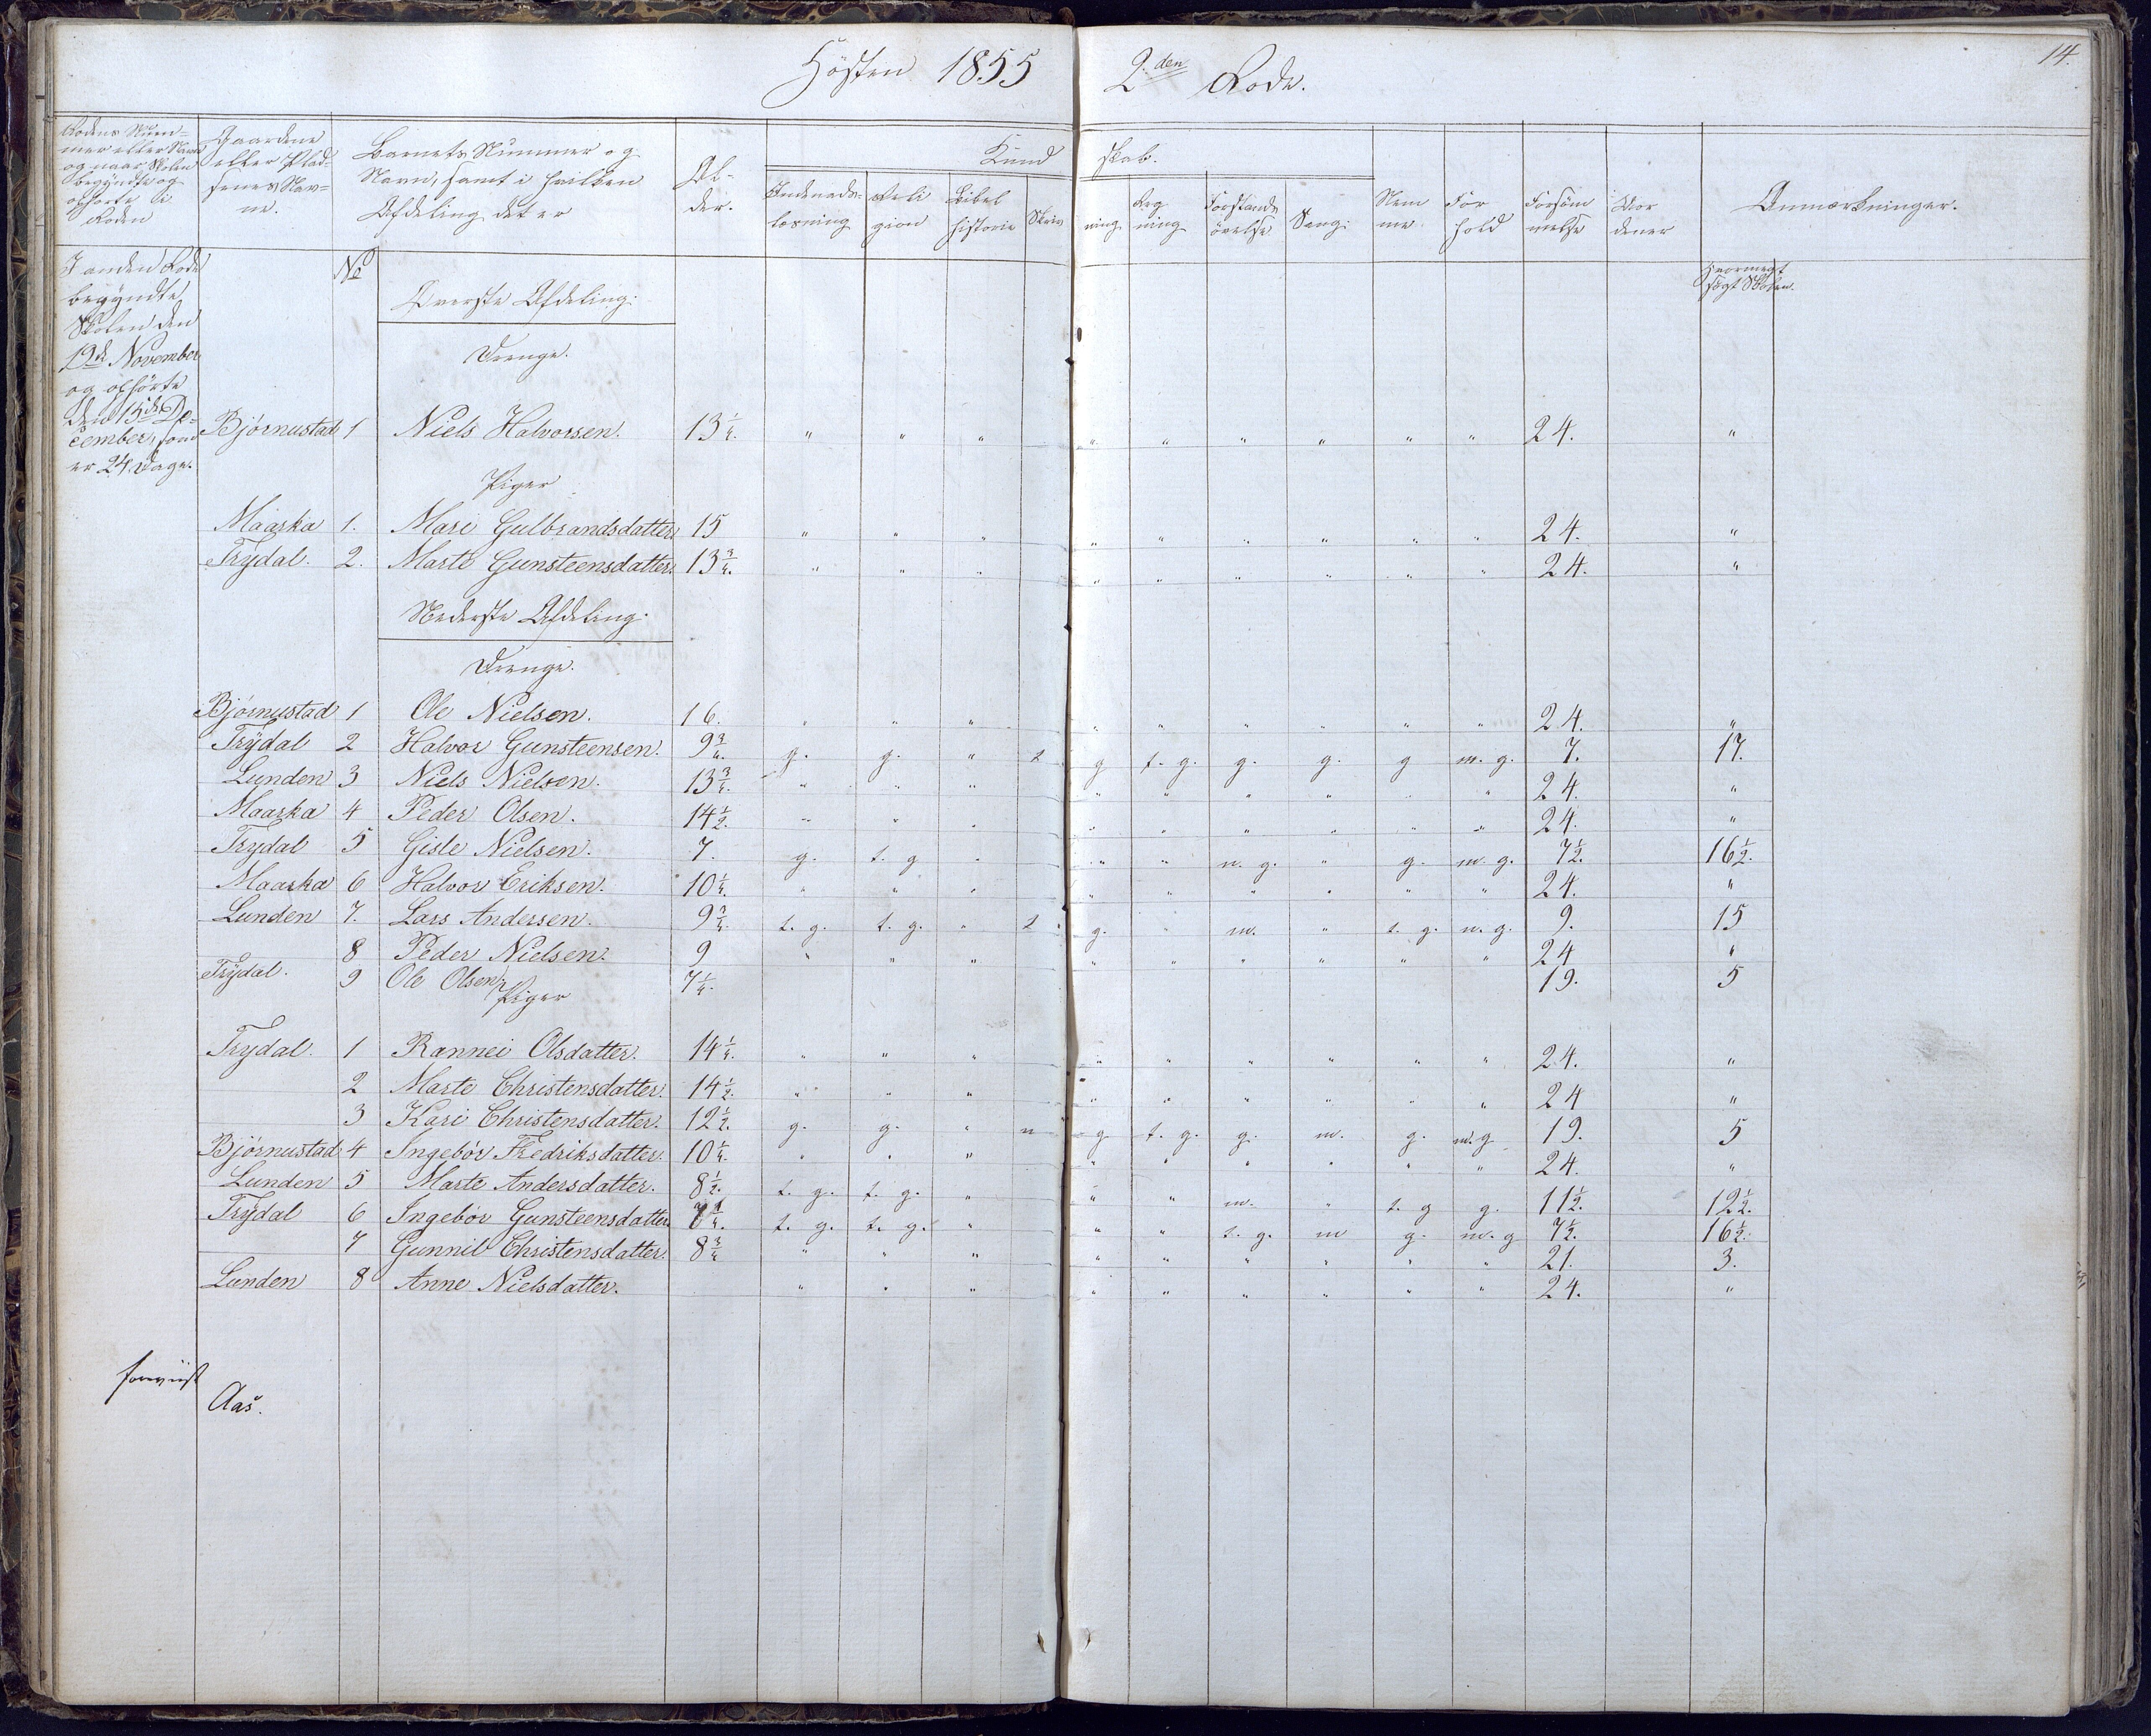 Høsten 1855 2den Rode. 14.
Rodens Num-
mer eller Navn
og naar Skolen
begyndte og
ophørte i
Roden
Gaardene
eller Plad-
senes Nav-
ne.
Barnets Nummer og
Navn, samt i hvilken
Afdeling det er
Al-
der.
Kund skab.
Indenads-
læsning
Reli
gion
Bibel
historie
Skriv
ning
Reg
ning
Forstands
øvelse
Sang.
Nem
me
For
hold
Forsøm
melse
Anmærkninger.
I anden Rode
begyndte
Skolen den
19de November
og ophørte
den 15de De-
cember, som
er 24 Dage.
No
Hvormegt
søgt Skolen.
Øverste Afdeling.
Drenge.
Bjørnustad 1 Niels Halvorsen. 13 1/4. " " " " " " " " " 24. "
Piger
Maarka 1. Mari Gulbrandsdatter 15 " " " " " " " " " 24. "
Trydal. 2. Marte Gunsteensdatter. 13 3/4. " " " " " " " " " 24. "
Nederste Afdeling.
Drenge.
Bjørnustad 1 Ole Nielsen. 16. " " " " " " " " " 24. "
Trydal 2 Halvor Gunsteensen. 9 3/4. g. g. " t g t. g. g. g. g m. g. 7. 17.
Lunden 3 Niels Nielsen. 13 3/4. " " " " " " " " 24. "
Maarka 4 Peder Olsen. 14 1/2. " " " " " " " " " 24. "
Trydal 5 Gisle Nielsen. 7. g. t. g " " " n. g. " g. m. g. 7 1/2. 16 1/2.
Maarka 6 Halvor Eriksen. 10 1/4. " " " " " " " " " 24. "
Lunden 7. Lars Andersen. 9 3/4. t. g. t. g. " t g. " m. " t. g. n. g. 9. 15
8 Peder Nielsen. 9 " " " " " " " " " 24 "
Trydal. 9 Ole Olsen. 7 1/4. 19. 5
Piger
Trydal. 1 Rannei Olsdatter. 14 1/4. " " " " " " " " " 24. "
2 Marte Christensdatter. 14 1/2. " " " " " " " " " 24 "
3 Kari Christensdatter. 12 1/2. g. g. " n g t. g. g. m. g. m. g 19. 5
Bjørnustad 4 Ingebor Fredriksdatter. 10 1/4. " " " " " " " " " 24. "
Lunden 5 Marte Andersdatter. 8 1/2. t. g. t. g. " " " m. " t. g g. 11 1/2. 12 1/2.
Trydal 6 Ingebor Gunsteensdatter t. g. t. g. " " " t. g. m g. m. g 7 1/2. 16 1/2.
7 Gunnil Christensdatter. 8 3/4 " " " " " " " " " 21. 3.
Lunden 8 Anne Nielsdatter. " " " " " " " " " 24. "
Aas.